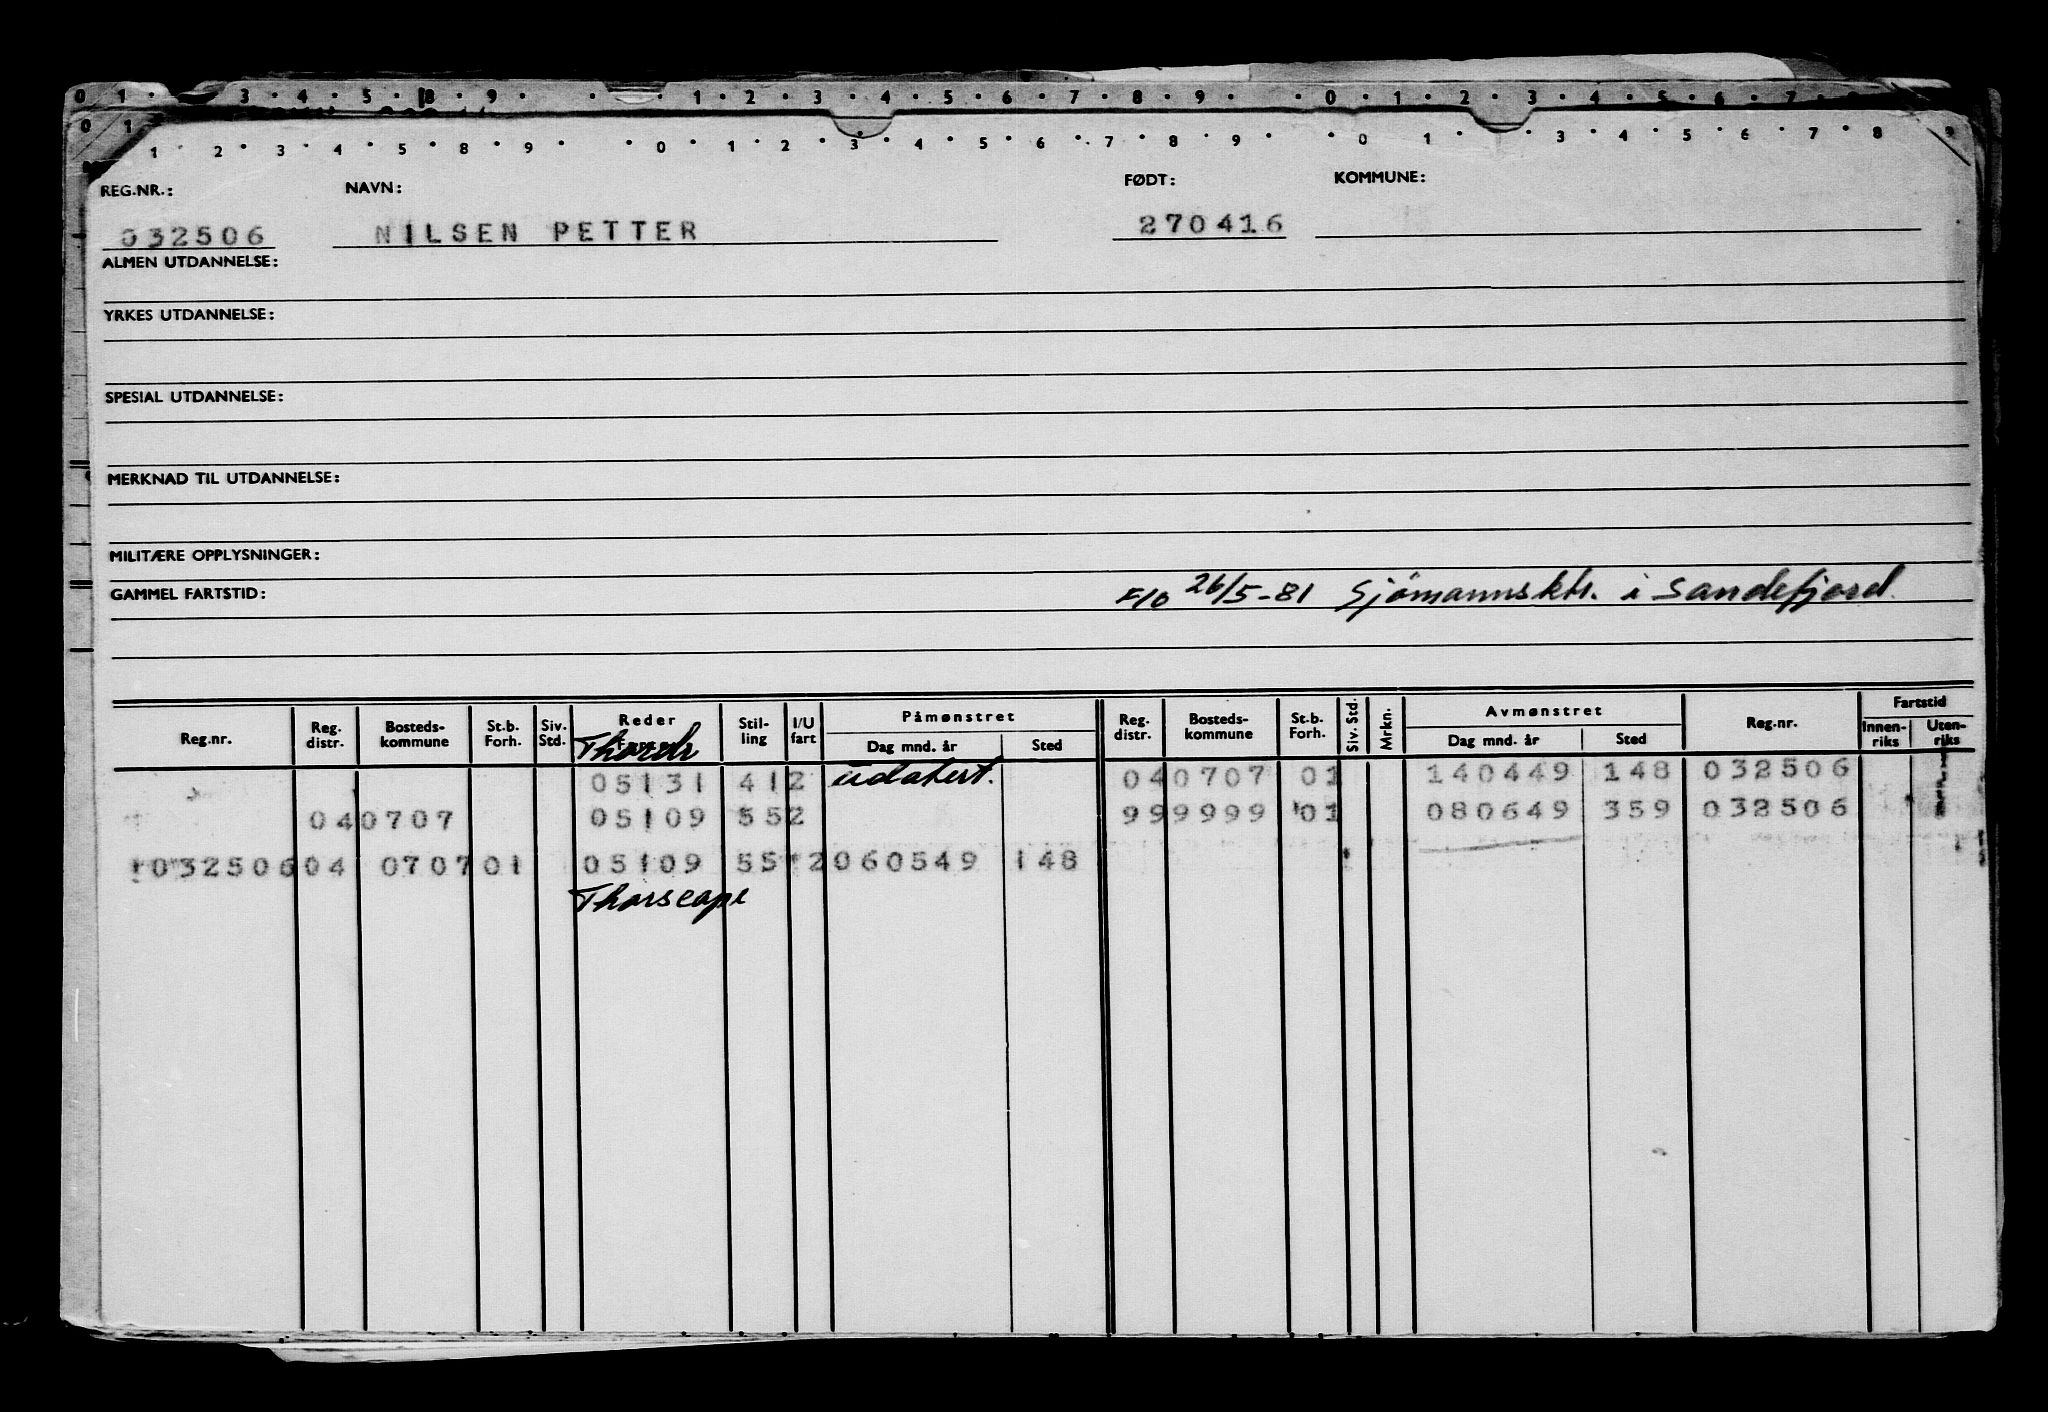 0 1 3 4 5 8 9 1 2 3 4 5 6 7 8 9 0 1 2 3 4 5 6 7
0 1
1 2 3 4 5 8 9 0 1 2 3 4 5 6 7 8 9 0 1 3 4 5 6 7 8 9
REG.NR.: NAVN: FØDT: KOMMUNE:
032506 NILSEN PETTER 270416
ALMEN UTDANNELSE:
YRKES UTDANNELSE:
SPESIAL UTDANNELSE:
MERKNAD TIL UTDANNELSE:
MILITÆRE OPPLYSNINGER:
GAMMEL FARTSTID: 26/5-81 Sjömannsktr. i Sandefjord
Reg.nr. Reg. distr. Bosteds-kommune St.b. Forh. Siv. Std. Reder Stil-ling I/U fart Påmønstret Dag mnd. år Sted Reg. distr. Bosteds-kommune St.b. Forh. Siv. Std. Mrkn. Avmønstret Dag mnd. år Sted Reg.nr. Fartstid Innen-riks Uten-riks
05131 41 2 udatert. 04 0707 01 140449 148 032506
04 0707 05109 55 2 99 9999 01 080649 359 032506
032506 04 0707 01 05109 55 2 060549 148
Thorscape